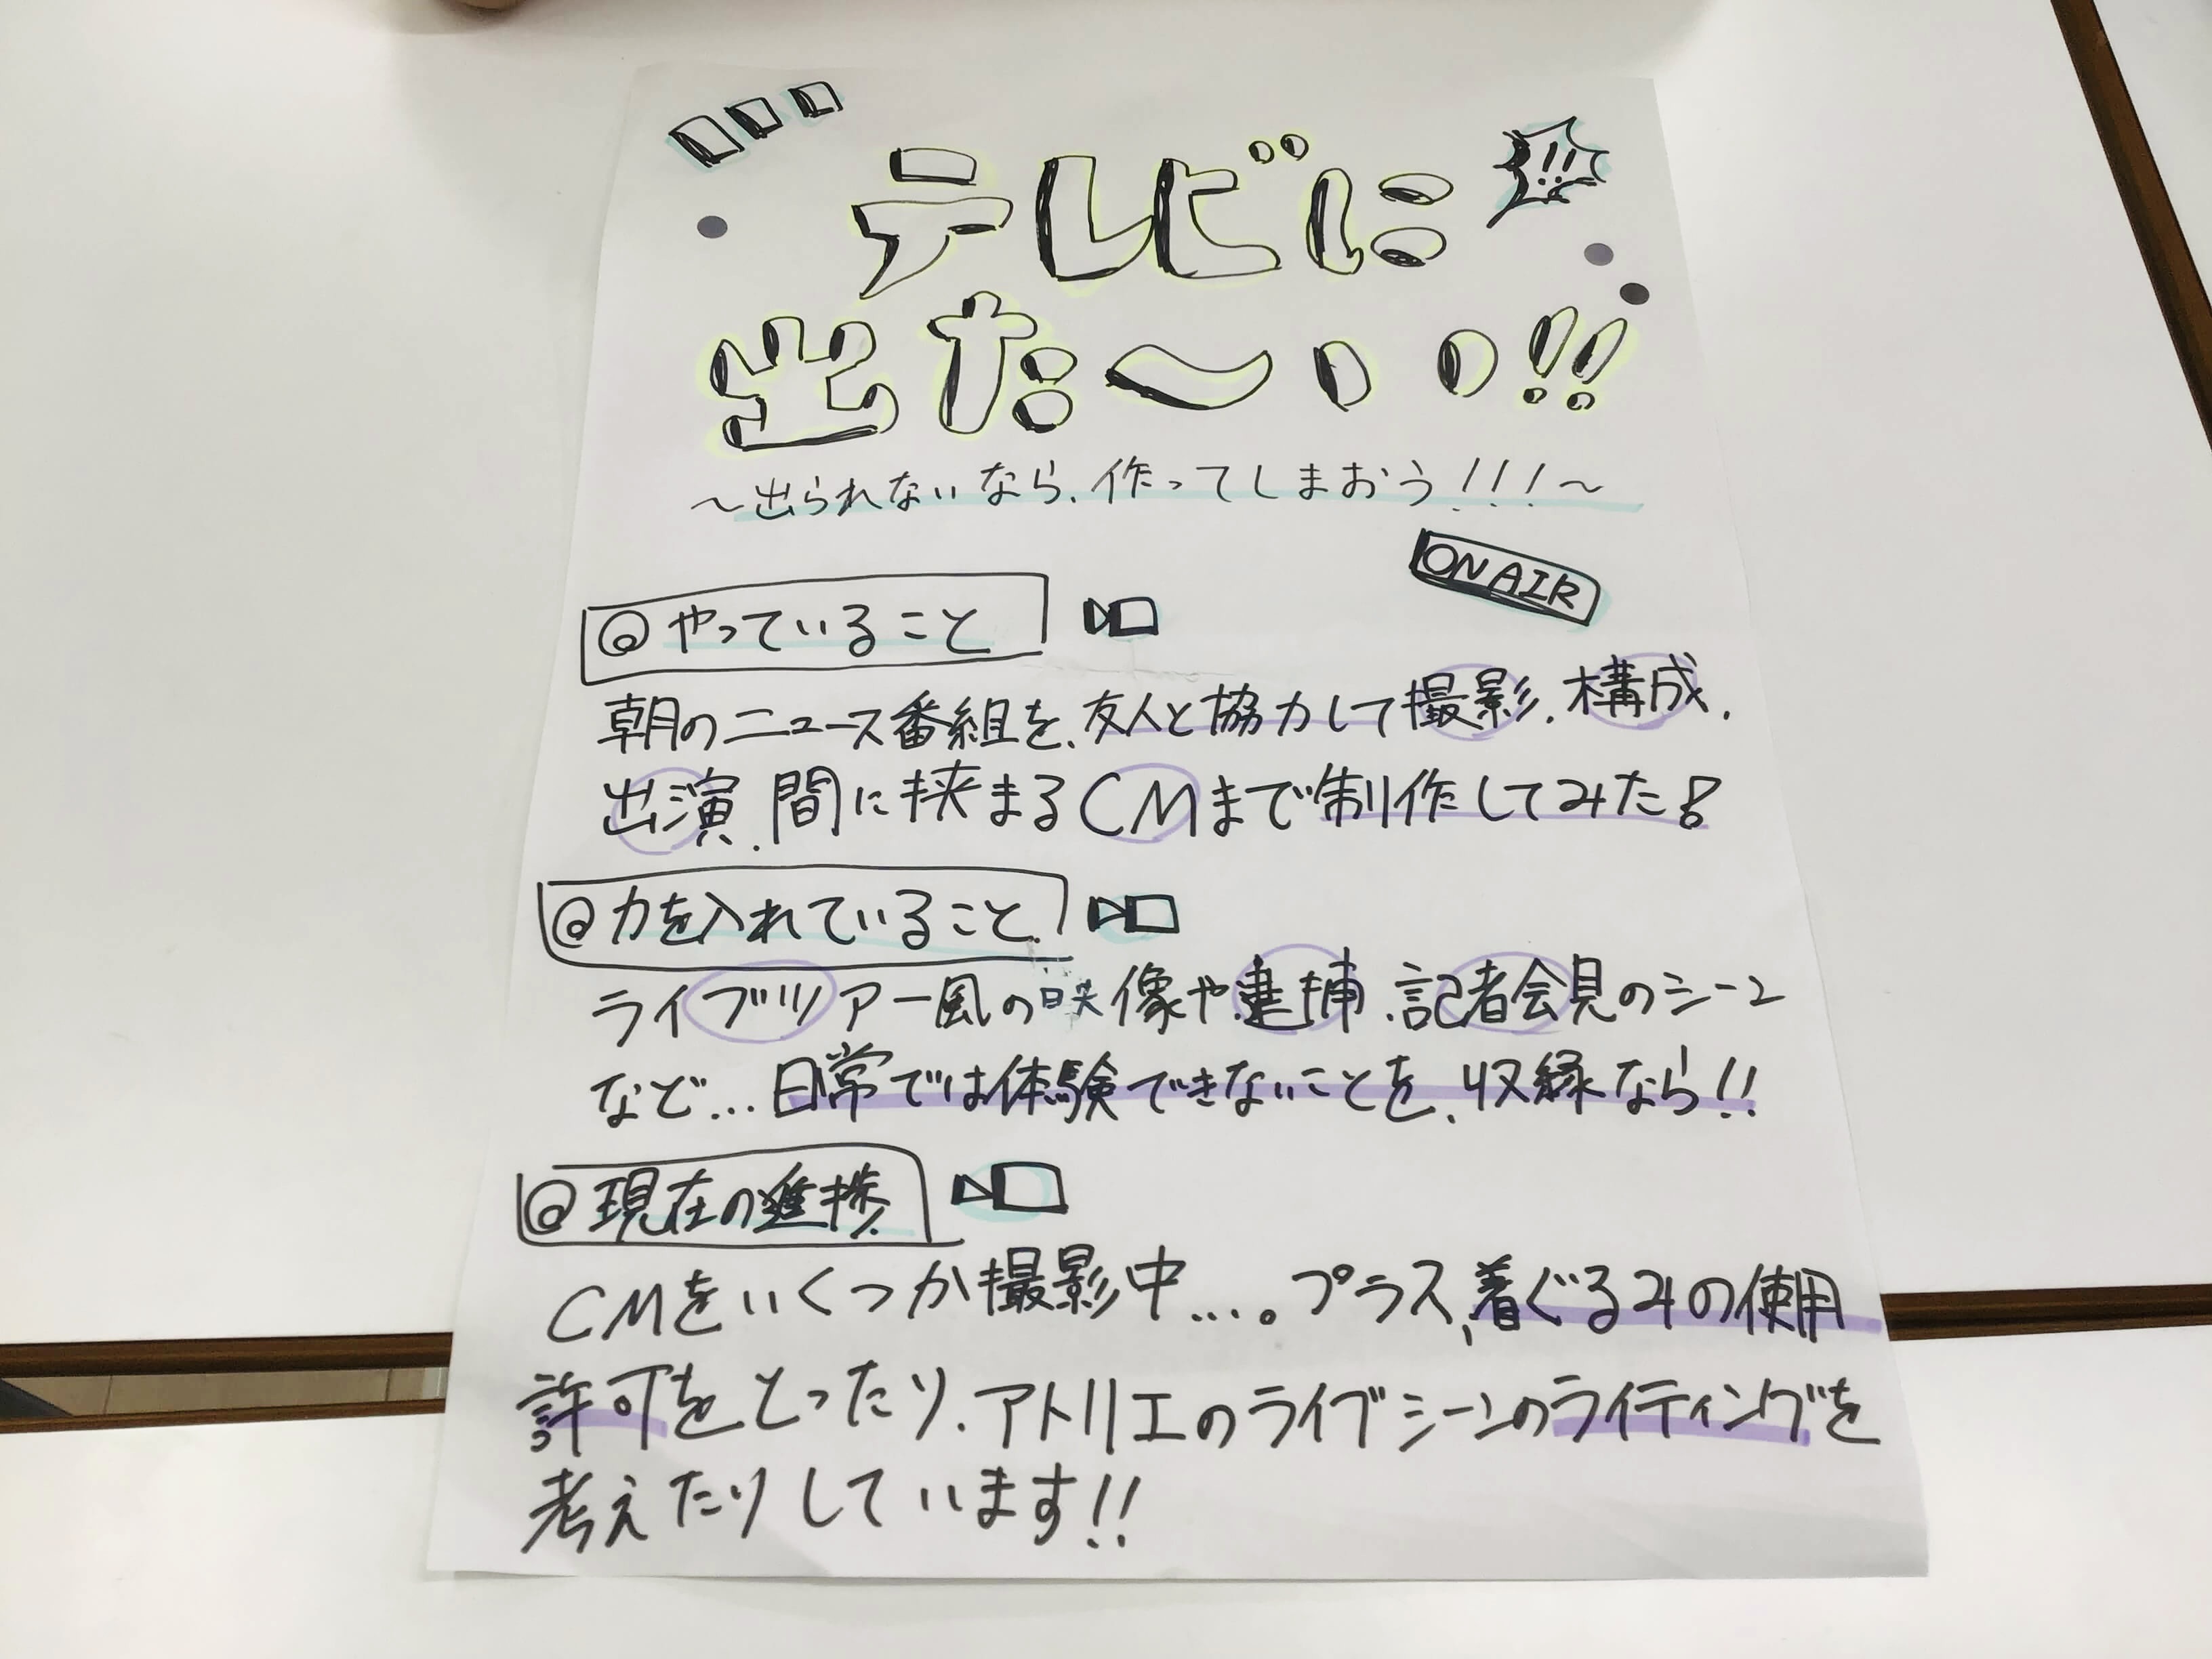 テレビに
!!
出た〜いい!!
〜出られないなら、作ってしまおう!!!〜
ON AIR
◎やっていること
朝のニュース番組を、友人と協力して撮影、構成、
出演、間に挟まるCMまで制作してみた!
◎力を入れていること
ライブツアー風の映像や逮捕、記者会見のシーン
など…日常では体験できないことを、収録なら!!
◎現在の進捗
CMをいくつか撮影中…。プラス、着ぐるみの使用
許可をとったり、アトリエのライブシーンのライティングを
考えたりしています!!